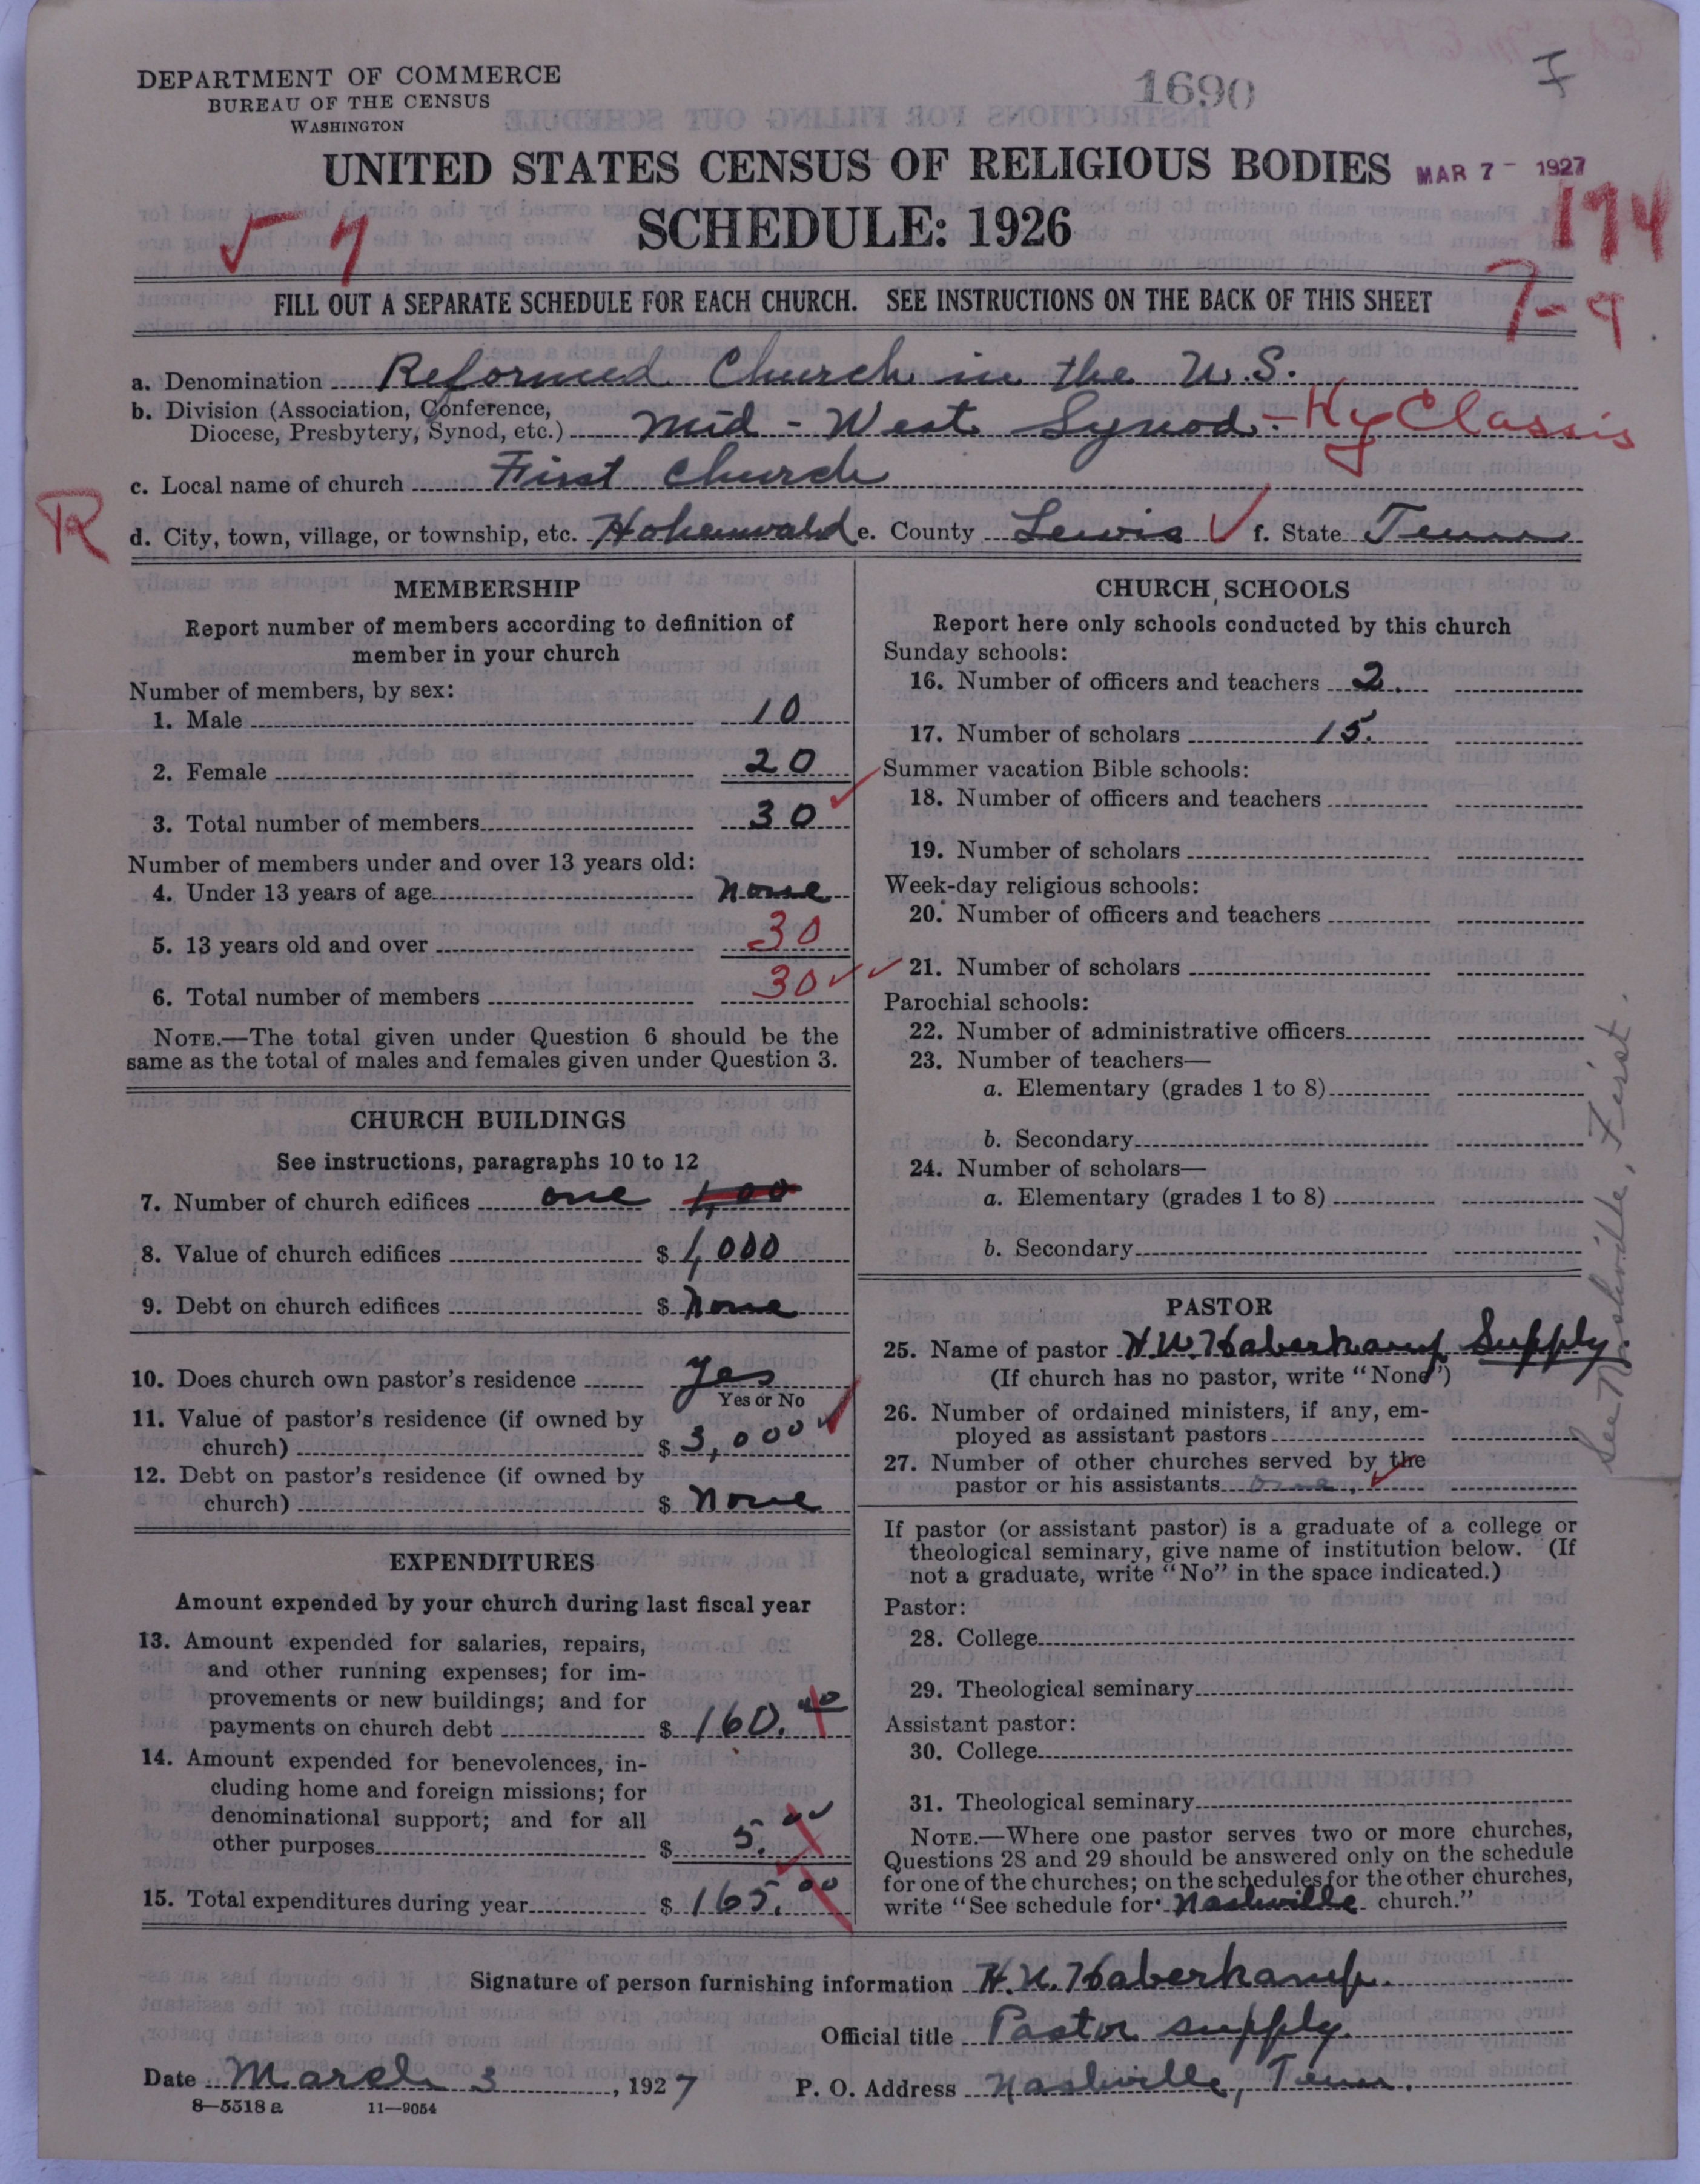 DEPARTMENT OF COMMERCE
BUREAU OF THE CENSUS
WASHINGTON
1690
UNITED STATES CENSUS OF RELIGIOUS BODIES
MAR 7 - 1927
SCHEDULE: 1926
194
7-9
FILL OUT A SEPARATE SCHEDULE FOR EACH CHURCH. SEE INSTRUCTIONS ON THE BACK OF THIS SHEET
a. Denomination Reformed Church in the U.S.
b. Division (Association, Conference,
Diocese, Presbytery, Synod, etc.) Mid-West Synod - Ky Classis
c. Local name of church First Church
R
d. City, town, village, or township, etc. Hohenwald e. County Lewis ✓ f. State Tenn
MEMBERSHIP
Report number of members according to definition of
member in your church
Number of members, by sex:
1. Male 10
2. Female 20
3. Total number of members 30 ✓
Number of members under and over 13 years old:
4. Under 13 years of age none
5. 13 years old and over 30
6. Total number of members 30 ✓
NOTE.—The total given under Question 6 should be the
same as the total of males and females given under Question 3.
CHURCH BUILDINGS
See instructions, paragraphs 10 to 12
7. Number of church edifices one
8. Value of church edifices $ 1,000
9. Debt on church edifices $ None
10. Does church own pastor's residence Yes
Yes or No
11. Value of pastor's residence (if owned by
church) $ 3,000 ✓
12. Debt on pastor's residence (if owned by
church) $ None
EXPENDITURES
Amount expended by your church during last fiscal year
13. Amount expended for salaries, repairs,
and other running expenses; for im-
provements or new buildings; and for
payments on church debt $ 160.00
14. Amount expended for benevolences, in-
cluding home and foreign missions; for
denominational support; and for all
other purposes $ 5.00
15. Total expenditures during year $ 165.00
CHURCH SCHOOLS
Report here only schools conducted by this church
Sunday schools:
16. Number of officers and teachers 2.
17. Number of scholars 15.
Summer vacation Bible schools:
18. Number of officers and teachers
19. Number of scholars
Week-day religious schools:
20. Number of officers and teachers
21. Number of scholars
Parochial schools:
22. Number of administrative officers
23. Number of teachers—
a. Elementary (grades 1 to 8)
b. Secondary
24. Number of scholars—
a. Elementary (grades 1 to 8)
b. Secondary
See Nashville, First.
PASTOR
25. Name of pastor H.W. Haberkamp Supply
(If church has no pastor, write "None")
26. Number of ordained ministers, if any, em-
ployed as assistant pastors
27. Number of other churches served by the
pastor or his assistants one. ✓
If pastor (or assistant pastor) is a graduate of a college or
theological seminary, give name of institution below. (If
not a graduate, write "No" in the space indicated.)
Pastor:
28. College
29. Theological seminary
Assistant pastor:
30. College
31. Theological seminary
NOTE.—Where one pastor serves two or more churches,
Questions 28 and 29 should be answered only on the schedule
for one of the churches; on the schedules for the other churches,
write "See schedule for Nashville church."
Signature of person furnishing information H.W. Haberkamp.
Official title Pastor supply.
Date March 3, 1927 P. O. Address Nashville, Tenn.
8—5518 a 11—9054